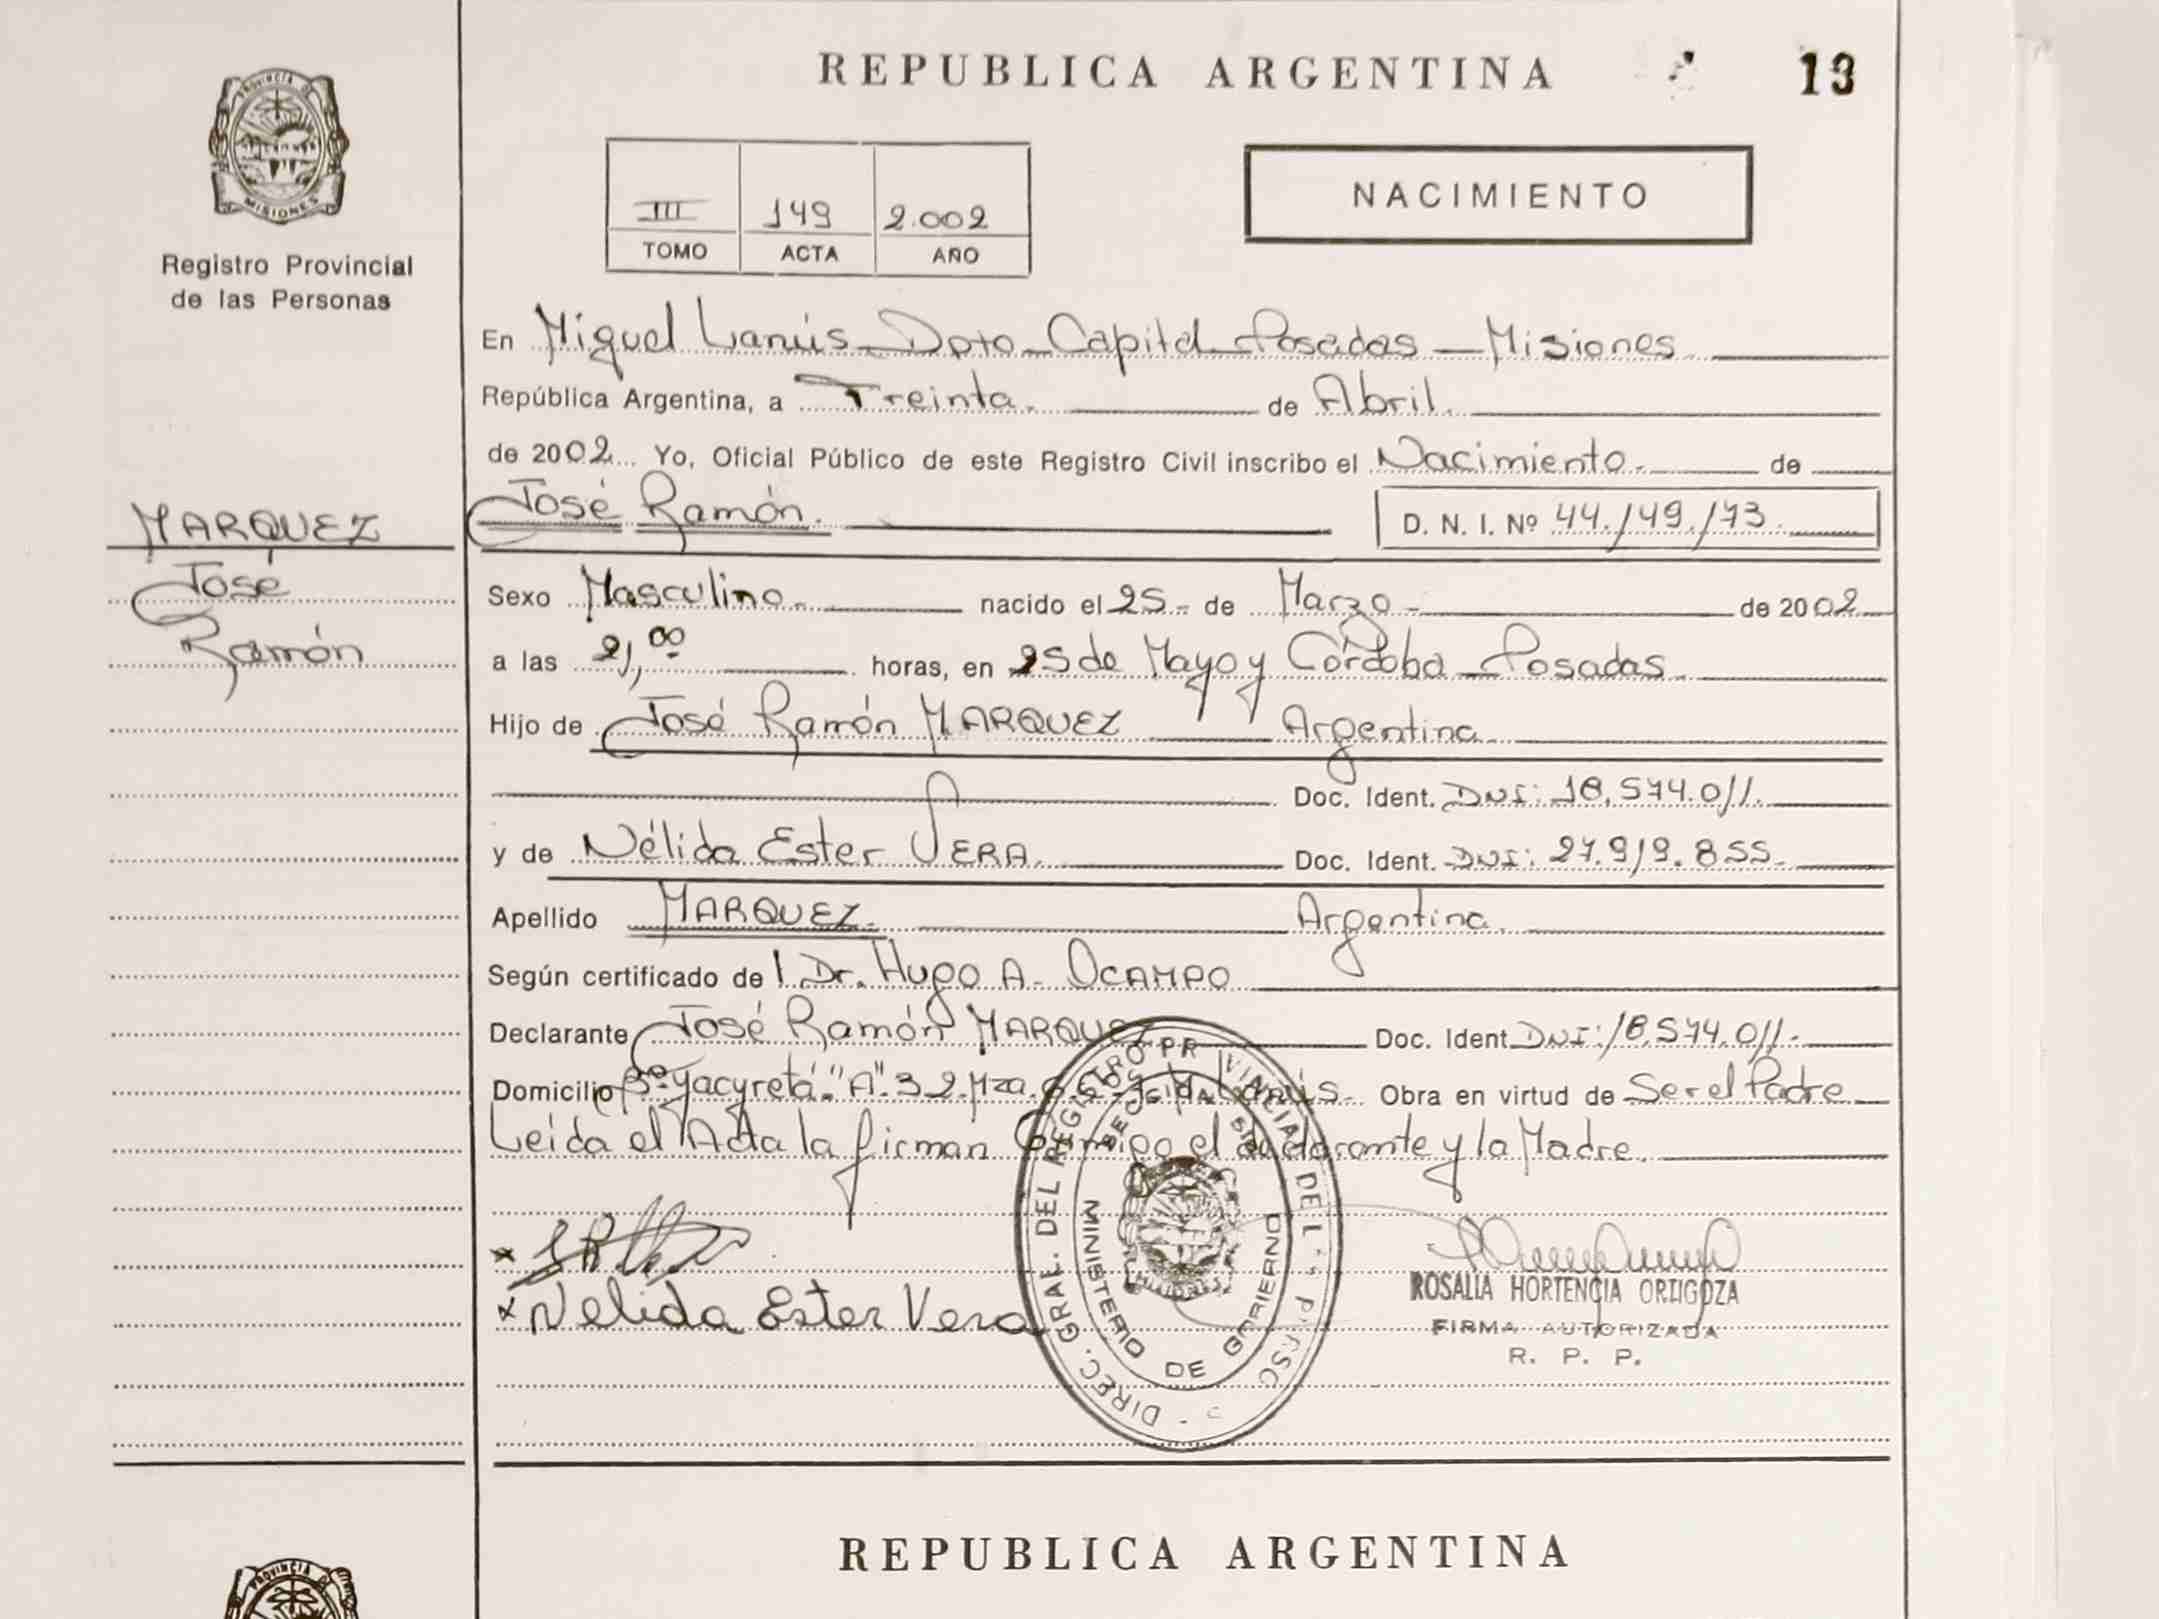 REPUBLICA ARGENTINA
13
PROVINCIA DE
MISIONES
Registro Provincial
de las Personas
III 149 2.002
TOMO ACTA AÑO
NACIMIENTO
En Miguel Lanús - Dpto - Capital - Posadas - Misiones
República Argentina, a Treinta. de Abril.
de 2002 Yo, Oficial Público de este Registro Civil inscribo el Nacimiento. de
José Ramón.
D. N. I. Nº 44.149.173
MARQUEZ
José
Ramón
Sexo Masculino. nacido el 25 - de Marzo - de 2002
a las 21,00 horas, en 25 de Mayo y Córdoba - Posadas.
Hijo de José Ramón MARQUEZ Argentina
Doc. Ident. DNI: 18.574.011.
y de Nélida Ester VERA. Doc. Ident. DNI: 27.919.855.
Apellido MARQUEZ. Argentina.
Según certificado de l Dr. Hugo A. OCAMPO
Declarante José Ramón MARQUEZ Doc. Ident. DNI: 18.574.011.
Domicilio Bº Yacyretá "A" 32 Mza. Lanús. Obra en virtud de Ser el Padre
Leída el Acta la firman Conmigo el declarante y la Madre.
Nelida Ester Vera
DIREC. GRAL. DEL REGISTRO PR VINCIAL DE L
MINISTERIO DE GOBIERNO
MISIONES
ROSALIA HORTENCIA ORTIGOZA
FIRMA AUTORIZADA
R. P. P.
REPUBLICA ARGENTINA
PROVINCIA DE